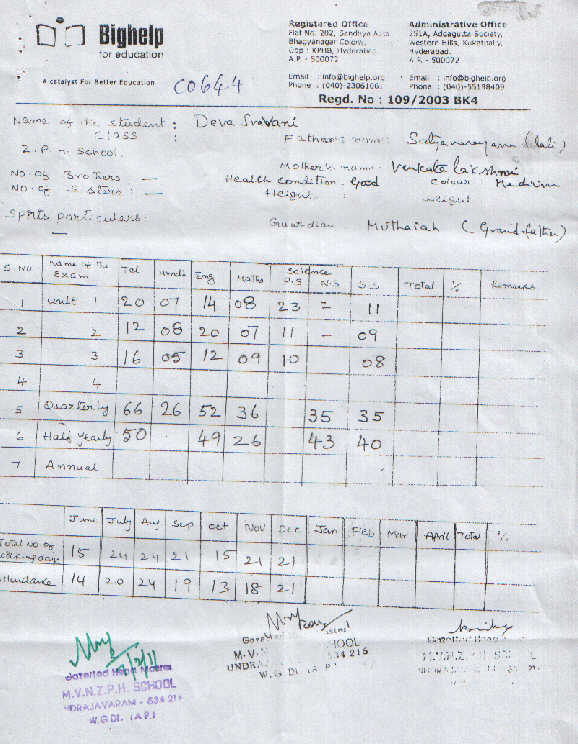 Bighelp
for education
A catalyst For Better Education
C0644
Registered Office
Bhagyanagar Colony,
Opp : KPHB, Hyderabad.
A.P - 500072
Email : info@bighelp.org
Administrative Office
Addagutta Society,
Western Hills, Kukatpally,
Hyderabad.
A.P. - 500072
Email : info@bighelp.org
Phone : (040)-55198409
Regd. No : 109/2003 BK4
Name of the student : Deva Sravani
Class :
Father's name: Satyanarayana (late)
Z.P.H. School.
Mother's name: Venkata lakshmi
No. of Brothers : —
Health condition . Good Colour Medium
No. of Sisters : —
Height: weight
Sports particulars:
—
Guardian Muthaiah (Grand father)
S No Name of the Exam Tel Hindi Eng Maths Science P.S N.S S.S Total % Remarks
1 Unit 1 20 07 14 08 23 – 11
2 2 12 08 20 07 11 – 09
3 3 16 05 12 09 10 08
4 4
5 Quarterly 66 26 52 36 35 35
6 Half yearly 50 . 49 26 43 40
7 Annual
June July Aug Sep Oct Nov Dec Jan Feb Mar April Total %
Total No of working days 15 24 24 21 15 21 21
Attendance 14 20 24 19 13 18 21
Gazetted Head Master
M.V.N.Z.P.H. SCHOOL
UNDRAJAVARAM - 534 216
W.G.Dt. (A.P.)